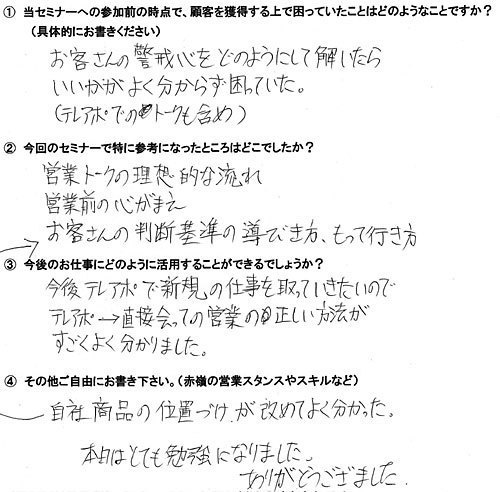 ① 当セミナーへの参加前の時点で、顧客を獲得する上で困っていたことはどのようなことですか?
(具体的にお書きください)
お客さんの警戒心をどのようにして解いたら
いいかがよく分からず困っていた。
(テレアポでのトークも含め)
② 今回のセミナーで特に参考になったところはどこでしたか?
営業トークの理想的な流れ
営業前の心がまえ
お客さんの判断基準の導びき方、もって行き方
③ 今後のお仕事にどのように活用することができるでしょうか?
今後テレアポで新規の仕事を取っていきたいので
テレアポ→直接会っての営業の正しい方法が
すごくよく分かりました。
④ その他ご自由にお書き下さい。(赤嶺の営業スタンスやスキルなど)
自社商品の位置づけが改めてよく分かった。
本日はとても勉強になりました。
ありがとうございました.